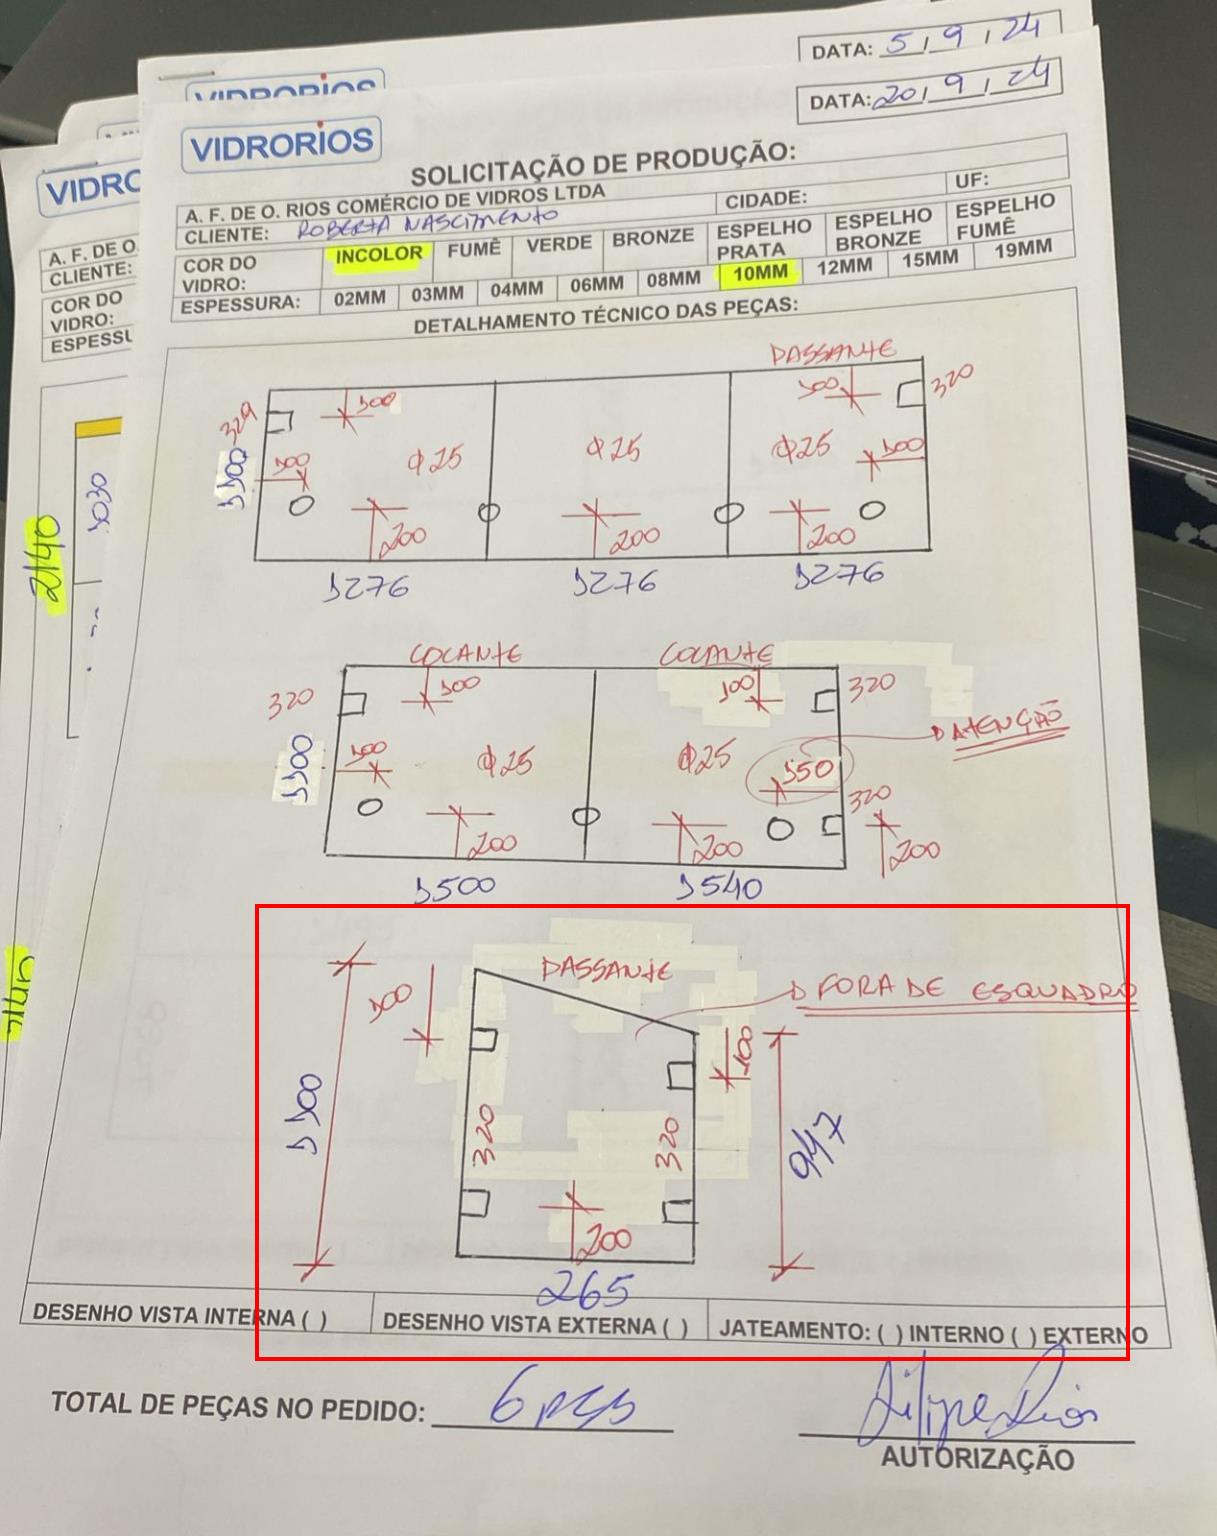 DATA: 5/9/24
VIDRORIOS
DATA: 20/9/24
VIDRORIOS
SOLICITAÇÃO DE PRODUÇÃO:
A. F. DE O. RIOS COMÉRCIO DE VIDROS LTDA
CIDADE:
UF:
CLIENTE: ROBERTA NASCIMENTO
COR DO VIDRO:
INCOLOR
FUMÊ
VERDE
BRONZE
ESPELHO PRATA
ESPELHO BRONZE
ESPELHO FUMÊ
ESPESSURA:
02MM
03MM
04MM
06MM
08MM
10MM
12MM
15MM
19MM
DETALHAMENTO TÉCNICO DAS PEÇAS:
PASSANTE
329
100
100
320
1100
100
Φ25
Φ25
Φ25
100
200
200
200
1276
1276
1276
COLANTE
COLANTE
320
100
100
320
ATENÇÃO
1100
100
Φ25
Φ25
150
320
200
200
200
1500
1540
PASSANTE
FORA DE ESQUADRO
100
100
1100
320
320
947
200
265
DESENHO VISTA INTERNA ( )
DESENHO VISTA EXTERNA ( )
JATEAMENTO: ( ) INTERNO ( ) EXTERNO
TOTAL DE PEÇAS NO PEDIDO: 6 pçs
Filipe Rios
AUTORIZAÇÃO
VIDRO
A. F. DE O
CLIENTE:
COR DO
VIDRO:
ESPESSU
1030
2140